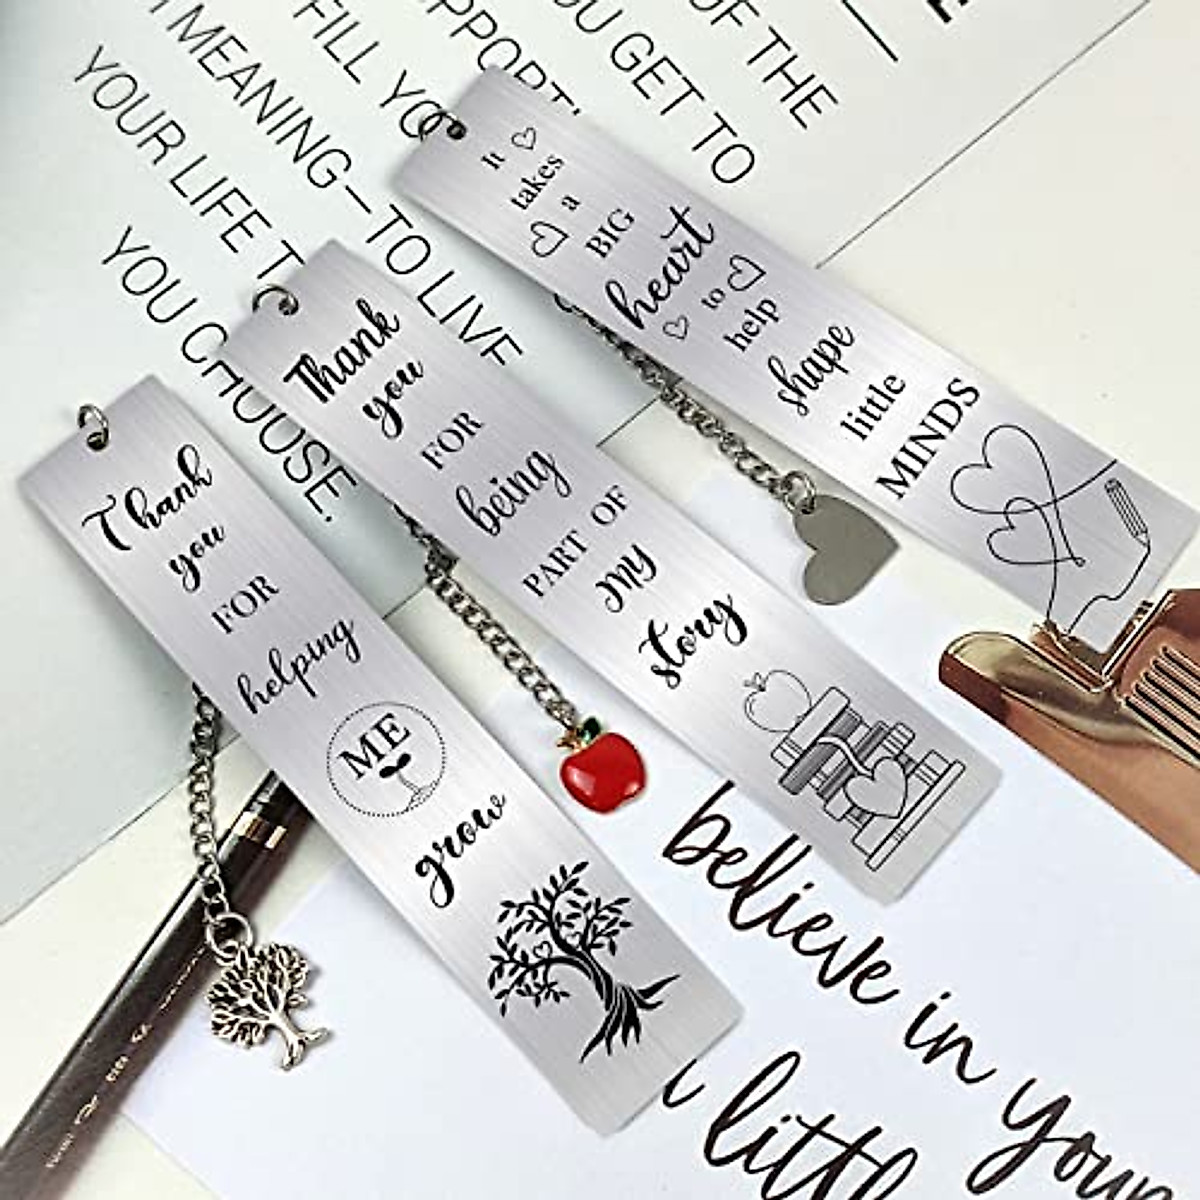 OF THE
YOU GET TO
PPORT
FILL YO
MEANING—TO LIVE
YOUR LIFE T
YOU CHOOSE.
It
takes
a
BIG
heart
to
help
shape
little
MINDS
Thank
you
FOR
being
PART OF
my
story
Thank
you
FOR
helping
ME
grow
believe in you
a little